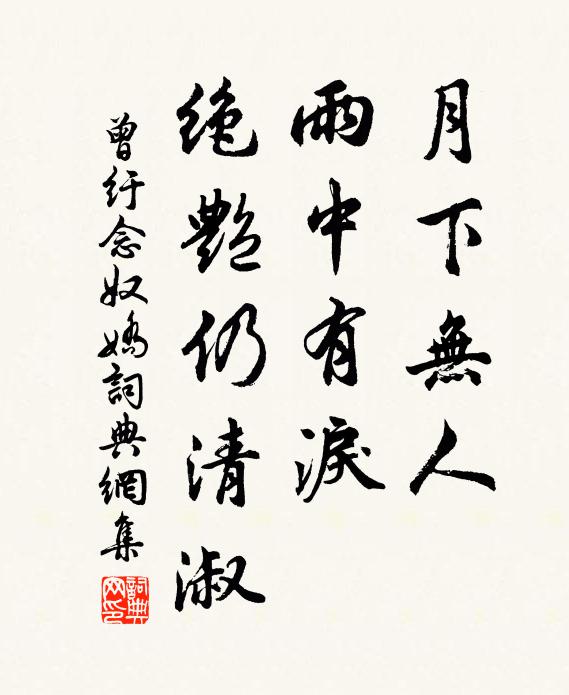 月下無人
雨中有淚
絶艷仍清淑
曾纡念奴嬌詞典網集
詞典网印